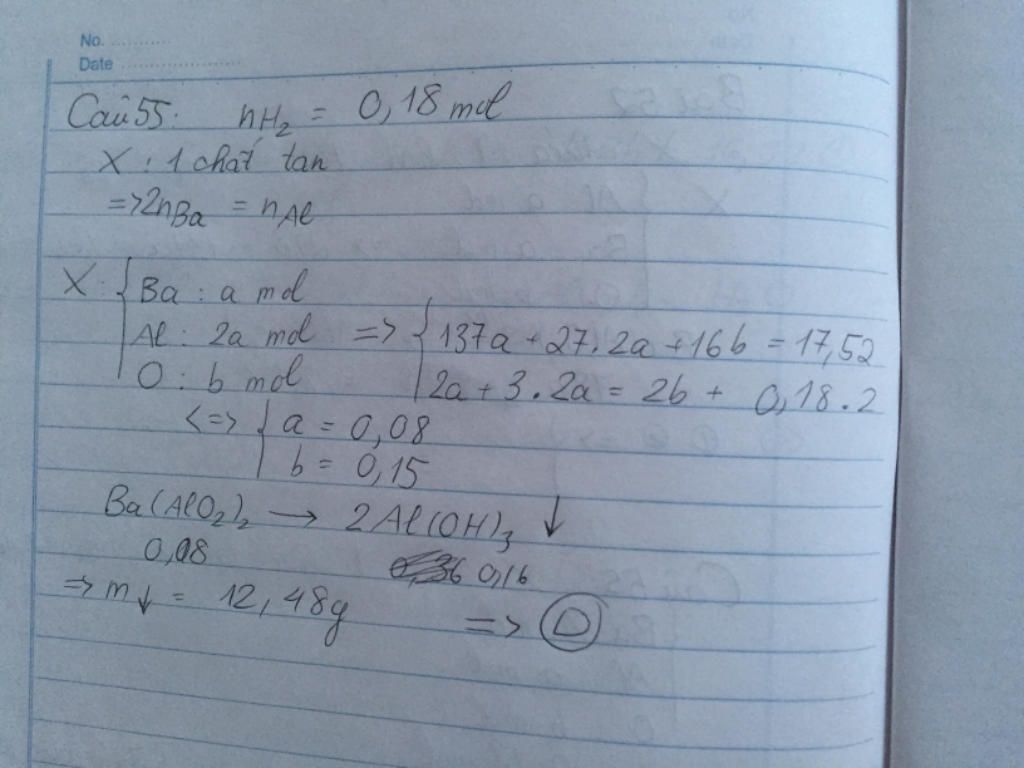 No. ............
Date ........................
Câu 55: nH₂ = 0,18 mol
X : 1 chất tan
=> 2nBa = nAl
X: { Ba : a mol
Al : 2a mol => { 137a + 27.2a + 16b = 17,52
O : b mol 2a + 3.2a = 2b + 0,18.2
<=> { a = 0,08
b = 0,15
Ba(AlO₂)₂ → 2Al(OH)₃ ↓
0,08 0,16
=> m↓ = 12,48g => D